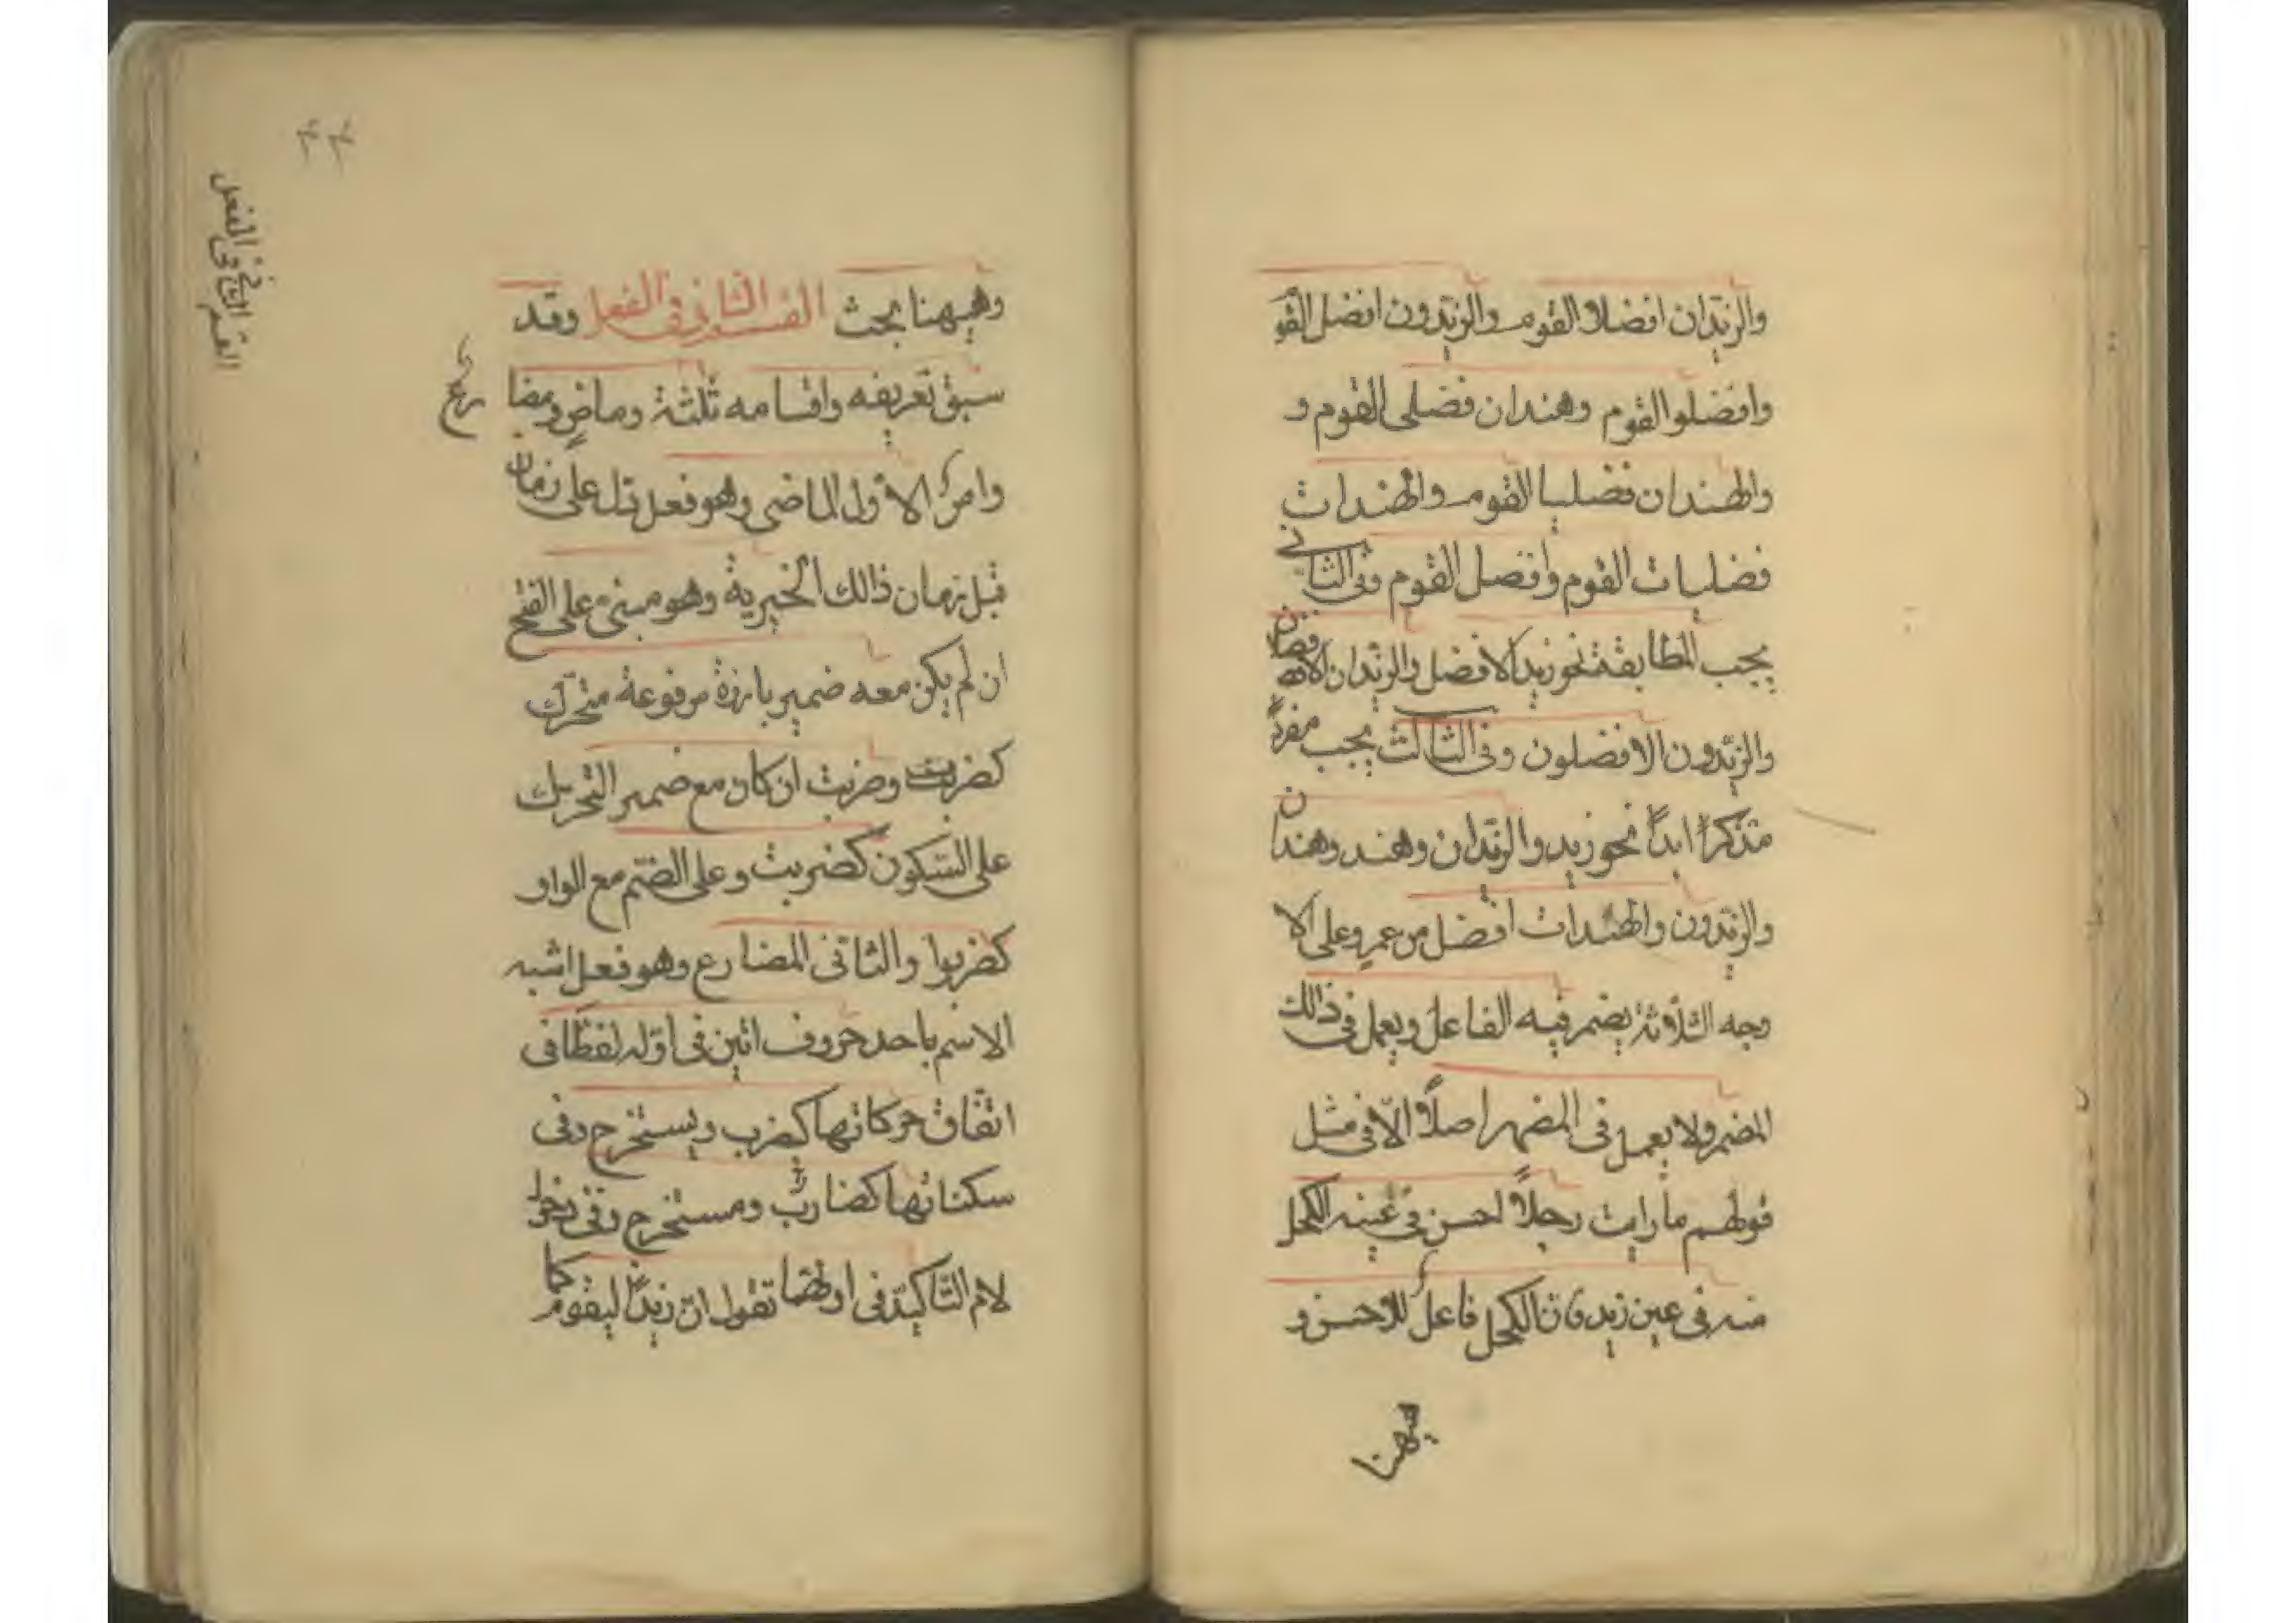 والزيدان افضلا القوم والزيدون افضل القو
وافضلوا القوم وهندان فضلى القوم و
والهندان فضليا القوم والهندات
فضليات القوم وافضل القوم وفى الثانى
يجب المطابقة نحو زيد الافضل والزيدان الافضلان
والزيدون الافضلون وفى الثالث يجب مفرداً
مذكراً ابداً نحو زيد والزيدان وهند وهندان
والزيدون والهندات افضل من عمرو وعلى الا
وجه الثلاثة يضمر فيه الفاعل ويعمل فى ذالك
المضمر ولا يعمل فى المضهر اصلاً الّا فى مثل
قولهم ما رايت رجلاً احسن فى عينه الكحل
منه فى عين زيد فان الكحل فاعل للاحسن و
هيهنا
٤٤
القسم الثانى فى الفعل
وهيهنا بحث القسم الثانى فى الفعل وقد
سبق تعريفه واقسامه ثلثة وماضٍ ومضارع
وامر الاول الماضى وهو فعل تدل على زمان
قبل زمان ذالك الخبرية وهو مبنى على الفتح
ان لم يكن معه ضمير بارزة مرفوعة متحرك
كضربت وضربت ان كان مع ضمير التحريك
على السّكون كضربت وعلى الضّم مع الواو
كضربوا والثانى المضارع وهو فعل اشبه
الاسم باحد حروف اتين فى اوّله لفظاً فى
اتّفاق حركاتها كيضرب ويستخرج وفى
سكناتها كضاربٌ ومستخرج وفى دخول
لام التّاكيد فى اولهما تقول انّ زيداً ليقوم كما